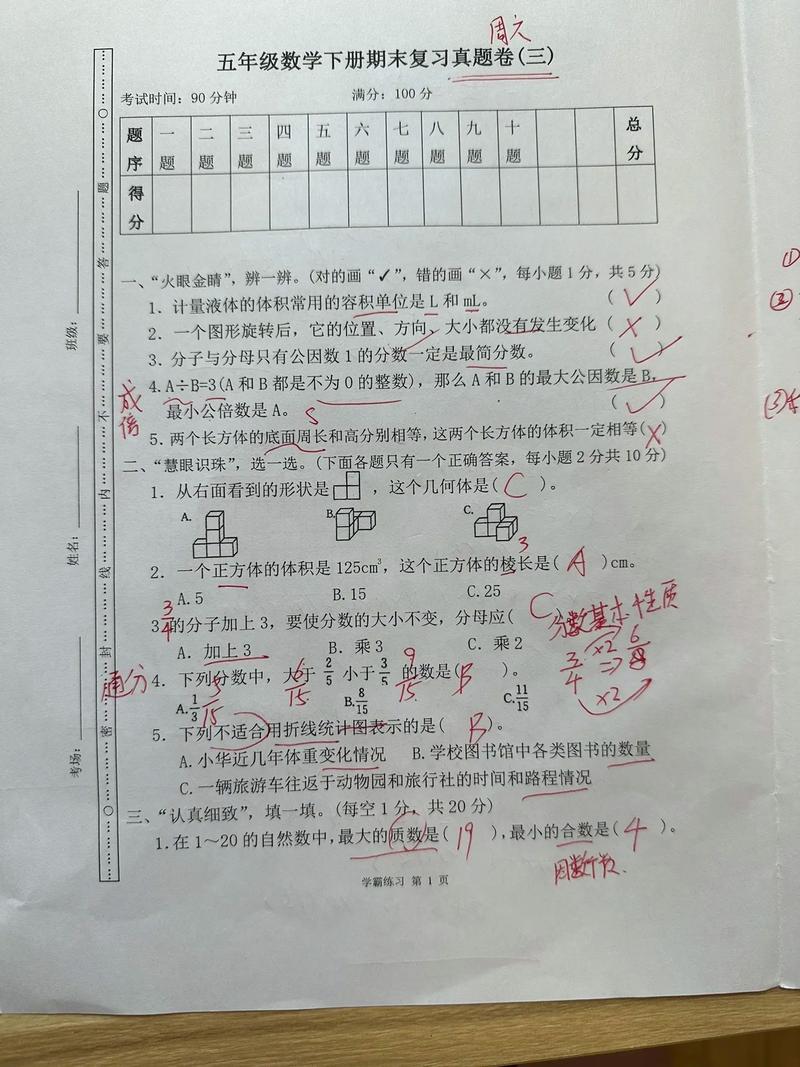 周六
五年级数学下册期末复习真题卷(三)
考试时间：90分钟 满分：100分
题序 一题 二题 三题 四题 五题 六题 七题 八题 九题 十题 总分
得分
一、“火眼金睛”，辨一辨。(对的画“✓”，错的画“×”，每小题1分，共5分)
1. 计量液体的体积常用的容积单位是L和mL。 (✓)
2. 一个图形旋转后，它的位置、方向、大小都没有发生变化 (×)
3. 分子与分母只有公因数1的分数一定是最简分数。 (✓)
4. A÷B=3(A和B都是不为0的整数)，那么A和B的最大公因数是B，
成倍
最小公倍数是A。 (✓)
S
5. 两个长方体的底面周长和高分别相等，这两个长方体的体积一定相等(×)
二、“慧眼识珠”，选一选。(下面各题只有一个正确答案，每小题2分共10分)
1. 从右面看到的形状是 ，这个几何体是( C )。
A. B. C.
3
2. 一个正方体的体积是125cm³，这个正方体的棱长是( A )cm。
A.5 B.15 C.25
3. 3/4 的分子加上3，要使分数的大小不变，分母应( C
分数基本性质
A. 加上3 B. 乘3 C. 乘2
×2
3/4 ⇒ 6/8
×2
通分
4. 下列分数中，大于 2/5 小于 3/5 的数是( B )。
5/15 6/15 9/15
A. 1/3 B. 8/15 C. 11/15
5. 下列不适合用折线统计图表示的是( B )。
A. 小华近几年体重变化情况 B. 学校图书馆中各类图书的数量
C. 一辆旅游车往返于动物园和旅行社的时间和路程情况
三、“认真细致”，填一填。(每空1分，共20分)
1. 在1～20的自然数中，最大的质数是( 19 )，最小的合数是( 4 )。
因数个数.
学霸练习 第 1 页
班级：
姓名：
考场：
密 封 线 内 不 要 答 题
①
②
③